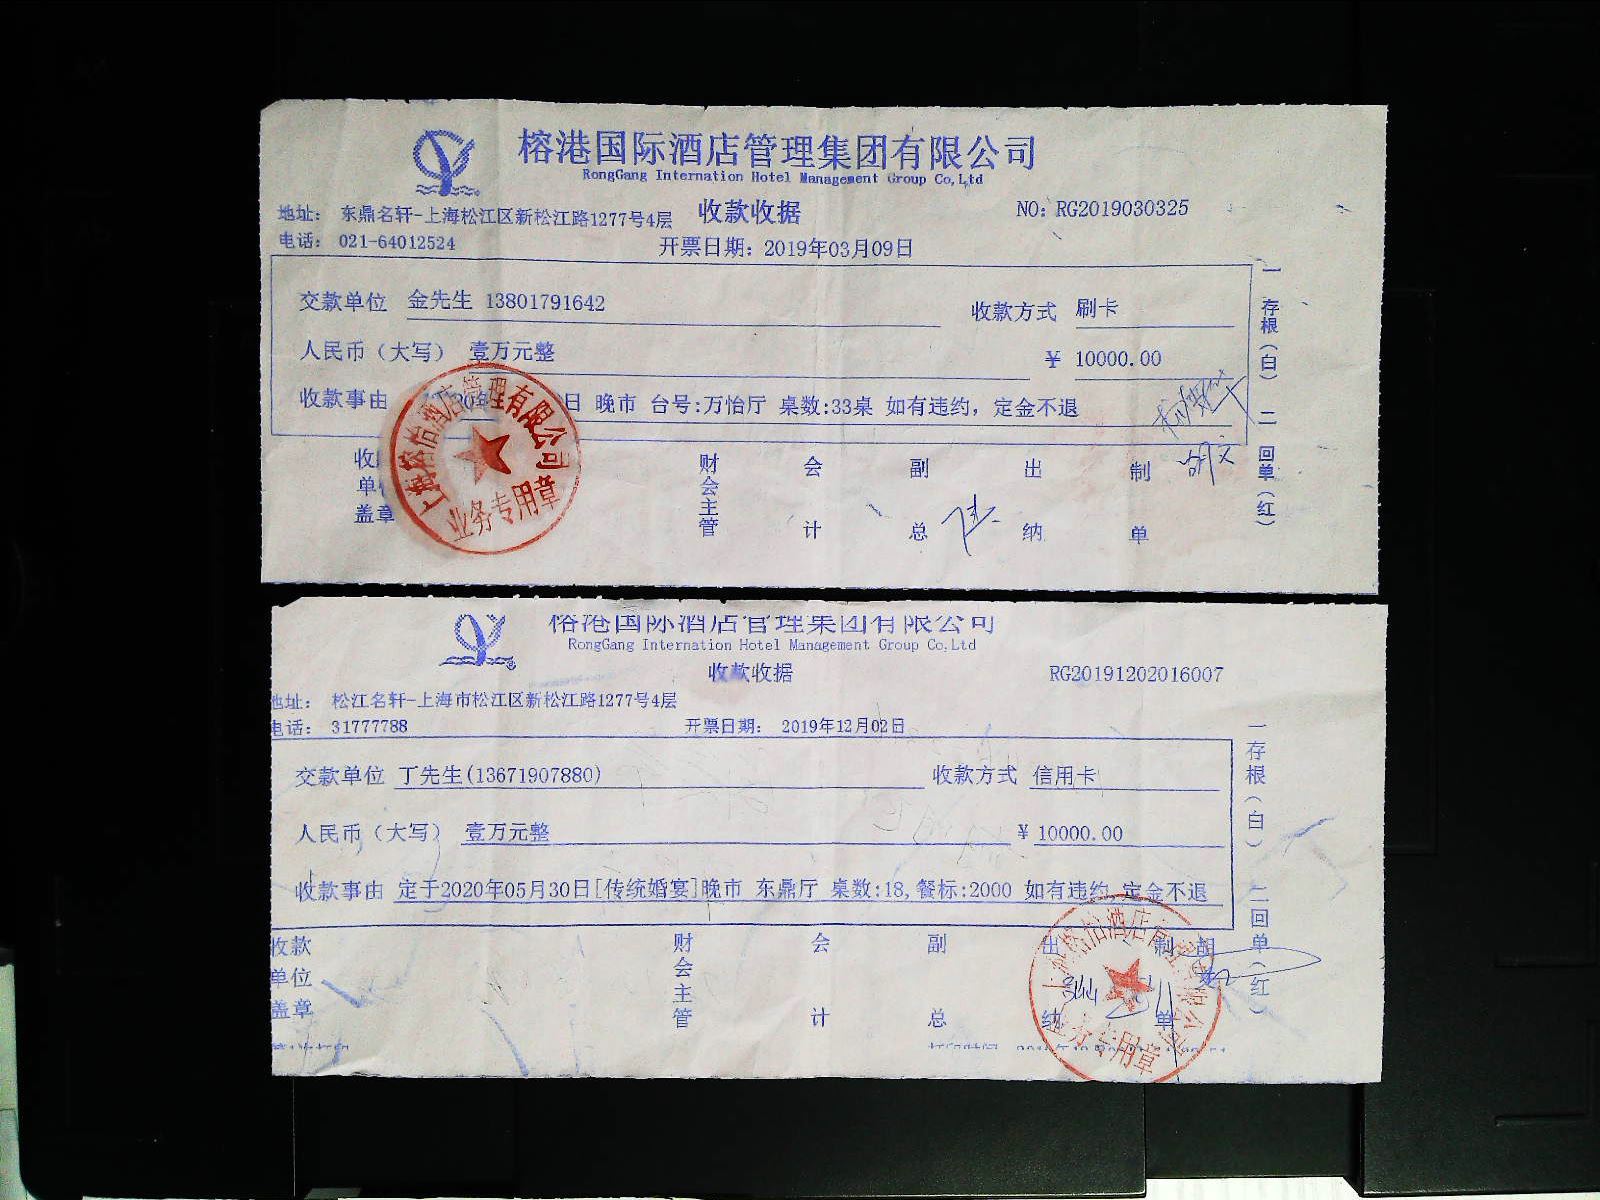 榕港国际酒店管理集团有限公司
RongGang Internation Hotel Management Group Co,Ltd
地址： 东鼎名轩-上海松江区新松江路1277号4层 收款收据 NO：RG2019030325
电话： 021-64012524 开票日期：2019年03月09日
交款单位 金先生 13801791642 收款方式 刷卡
人民币（大写） 壹万元整 ￥ 10000.00
收款事由 日 晚市 台号:万怡厅 桌数:33桌 如有违约，定金不退
收 单 盖章 财会主管 会计 副总 出纳 制单
一 存根（白） 二 回单（红）
上海榕怡酒店管理有限公司
业务专用章
榕港国际酒店管理集团有限公司
RongGang Internation Hotel Management Group Co,Ltd
收款收据 RG20191202016007
地址： 松江名轩-上海市松江区新松江路1277号4层
电话： 31777788 开票日期： 2019年12月02日
交款单位 丁先生(13671907880) 收款方式 信用卡
人民币（大写） 壹万元整 ￥ 10000.00
收款事由 定于2020年05月30日[传统婚宴]晚市 东鼎厅 桌数:18,餐标:2000 如有违约,定金不退
收款单位盖章 财会主管 会计 副总 出纳 制单 胡
一存根（白） 二回单（红）
上海榕怡酒店管理有限公司
业务专用章